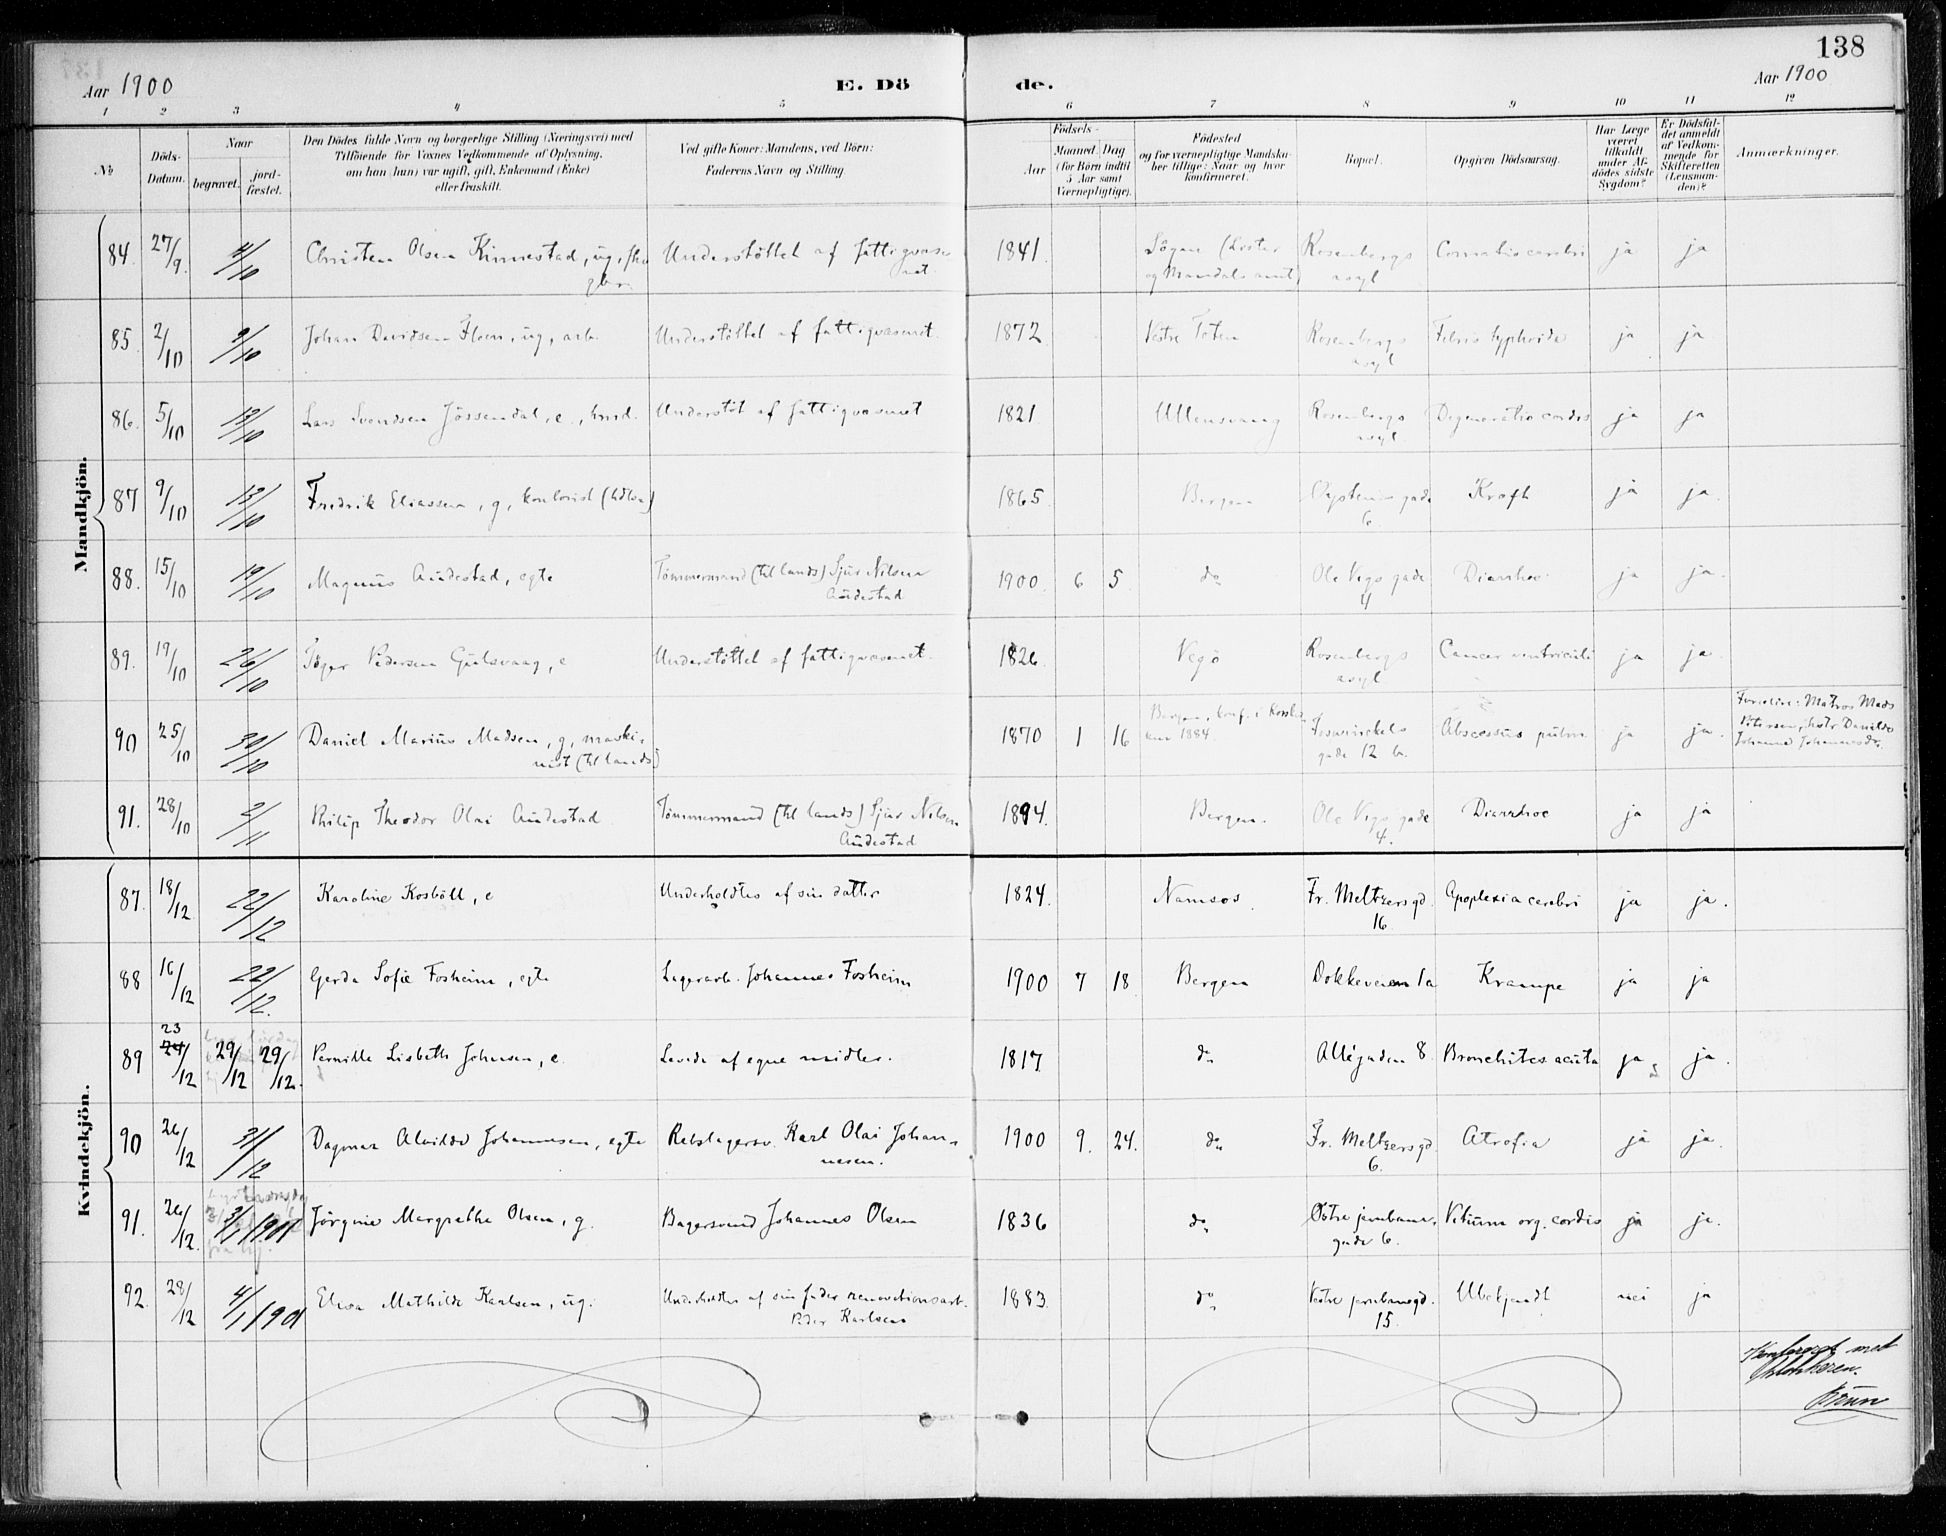 138
Aar 1900
E. Dö de.
Aar 1900
1 2 3 4 5 6 7 8 9 10 11 12
No
Döds-Datum.
Naar
begravet.
jord-fæstet.
Den Dödes fulde Navn og borgerlige Stilling (Næringsvei) med
Tilföiende for Voxnes Vedkommende af Oplysning,
om han (hun) var ugift, gift, Enkemand (Enke)
eller fraskilt.
Ved gifte Koner: Mandens, ved Börn:
Faderens Navn og Stilling.
Födsels-
Aar
Maaned. Dag
(for Börn indtil
5 Aar samt
Værnepligtige).
Födested
og for værnepligtige Mandska-
ber tillige: Naar og hvor
konfirmeret.
Bopæl.
Opgiven Dödsaarsag.
Har Læge
været
tilkaldt
under Af-
dödes sidste
Sygdom?
Er Dödsfal-
det anmeldt
af Vedkom-
mende for
Skifteretten
(Lensman-
den)?
Anmærkninger.
Mandkjön.
84. 27/9. 4/10 Christen Olsen Kinnestad, ug, Understöttet af fattigvæse- 1841. Sögne (Lister Rosenbergs cerebri ja ja
net og Mandals amt) asyl
85. 2/10 9/10 Johan Davidsen, ug, arb. Understöttet af fattigvæsenet. 1872 Vestre Toten Rosenbergs Febris typhoida ja ja
asyl
86. 5/10 13/10 Lars Svendsen Jössendal, e., Understöt af fattigvæsenet 1821. Ullensvang Rosenbergs Degeneratio cordis ja ja
asyl.
87 9/10 13/10 Fredrik Eliassen, g, kontorist 1865 Bergen gade Kræft ja ja.
6.
88. 15/10 19/10 Magnus Audestad, egte Tömmermand (til lands) Sjur Nilsen 1900. 6 5. do Ole Vigs gade Diarrhoe ja ja.
Audestad 4
89. 19/10 26/10 Pedersen, e Understöttet af fattigvæsenet. 1826. Vegö Rosenbergs Cancer ventriculi ja ja.
asyl
90 25/10 30/10 Daniel Marius Madsen, g, maski- 1870 1 16 Bergen, konf. i 1884. Abscessus pulm ja ja.
nist (til lands) gade 12 b.
Forældre: Matros Mads
Petersen, Danilde
Johanne
91. 28/10 2/11 Philip Theodor Olai Audestad Tömmermand (til lands) Sjur Nilsen 1894. Bergen. Ole Vigs gade Diarrhoe ja ja
Audestad 4.
Kvindekjön.
87. 18/12 22/12 Karoline Kosböll, e Underholdtes af sin datter 1824. Namsos. Fr. Meltzersgd. Apoplexia cerebri ja ja.
16
88 16/12 22/12. Gerda Sofie Fosheim, egte Lagerarb. Johannes Fosheim 1900 7 18 Bergen Dokkeveien 1a Krampe ja ja
23
89 24/12 29/12 29/12. Pernille Lisbeth Johnsen, e. Levede af egne midler. 1817 do Allégaden 8. Bronchites acuta ja ja.
90 26/12 31/12 Dagmar Alvilde Johannesen, egte Rebslagersv. Karl Olai Johan- 1900 9. 24. do Fr. Meltzersgd. Atrofia ja ja.
nesen. 6.
91. 26/12. 3/1 1901 Jörgine Margrethe Olsen, g. Bagersvend Johannes Olsen 1836 do Östre jernbane- Vitium org. cordis ja ja.
gade 6.
92. 28/12 4/1 1901 Elisa Mathilde Karlsen, ug. Underholdtes af sin fader renovationsarb. 1883. do Vestre jernbanegd. Ubekjendt nei ja
Peder Karlsen 15.
med
Klokkeren.
Brun